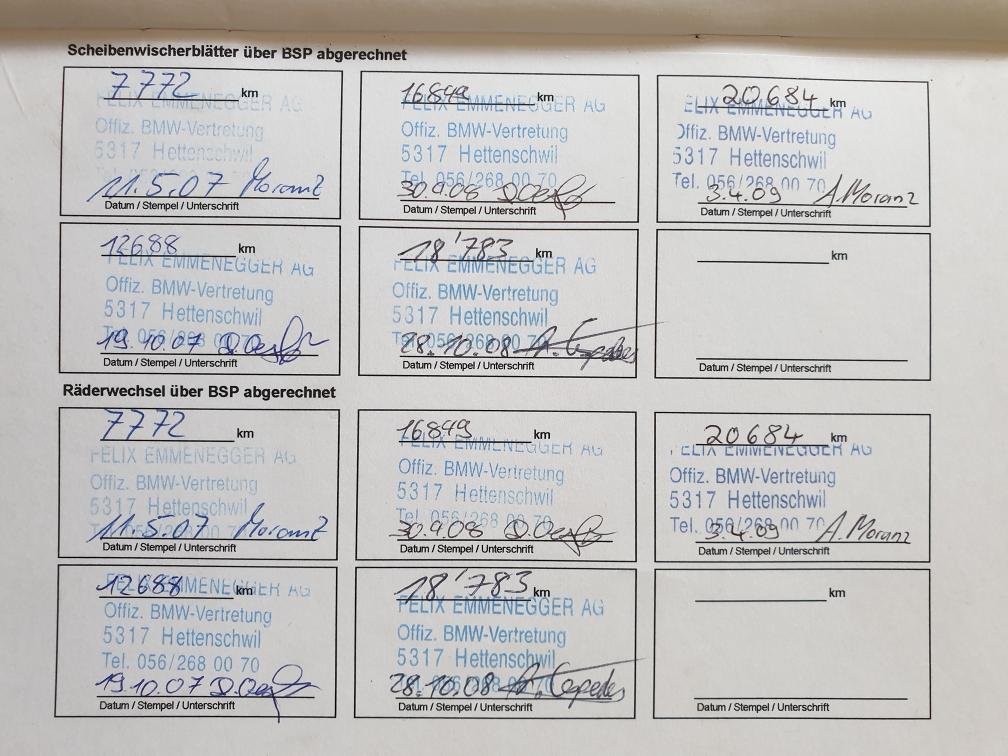 Scheibenwischerblätter über BSP abgerechnet
7772 km
FELIX EMMENEGGER AG
Offiz. BMW-Vertretung
5317 Hettenschwil
11.5.07 Moranz
Datum / Stempel / Unterschrift
16849 km
FELIX EMMENEGGER AG
Offiz. BMW-Vertretung
5317 Hettenschwil
Tel. 056/268 00 70
30.9.08
Datum / Stempel / Unterschrift
20684 km
FELIX EMMENEGGER AG
Offiz. BMW-Vertretung
5317 Hettenschwil
Tel. 056/268 00 70
3.4.09 A.Moranz
Datum / Stempel / Unterschrift
12688 km
FELIX EMMENEGGER AG
Offiz. BMW-Vertretung
5317 Hettenschwil
Tel. 056/268 00 70
19.10.07
Datum / Stempel / Unterschrift
18'783 km
FELIX EMMENEGGER AG
Offiz. BMW-Vertretung
5317 Hettenschwil
Tel. 056/268 00 70
28.10.08
Datum / Stempel / Unterschrift
km
Datum / Stempel / Unterschrift
Räderwechsel über BSP abgerechnet
7772 km
FELIX EMMENEGGER AG
Offiz. BMW-Vertretung
5317 Hettenschwil
11.5.07 Moranz
Datum / Stempel / Unterschrift
16849 km
FELIX EMMENEGGER AG
Offiz. BMW-Vertretung
5317 Hettenschwil
Tel. 056/268 00 70
30.9.08
Datum / Stempel / Unterschrift
20684 km
FELIX EMMENEGGER AG
Offiz. BMW-Vertretung
5317 Hettenschwil
Tel. 056/268 00 70
3.4.09 A.Moranz
Datum / Stempel / Unterschrift
12688 km
FELIX EMMENEGGER AG
Offiz. BMW-Vertretung
5317 Hettenschwil
Tel. 056/268 00 70
19.10.07
Datum / Stempel / Unterschrift
18'783 km
FELIX EMMENEGGER AG
Offiz. BMW-Vertretung
5317 Hettenschwil
28.10.08
Datum / Stempel / Unterschrift
km
Datum / Stempel / Unterschrift